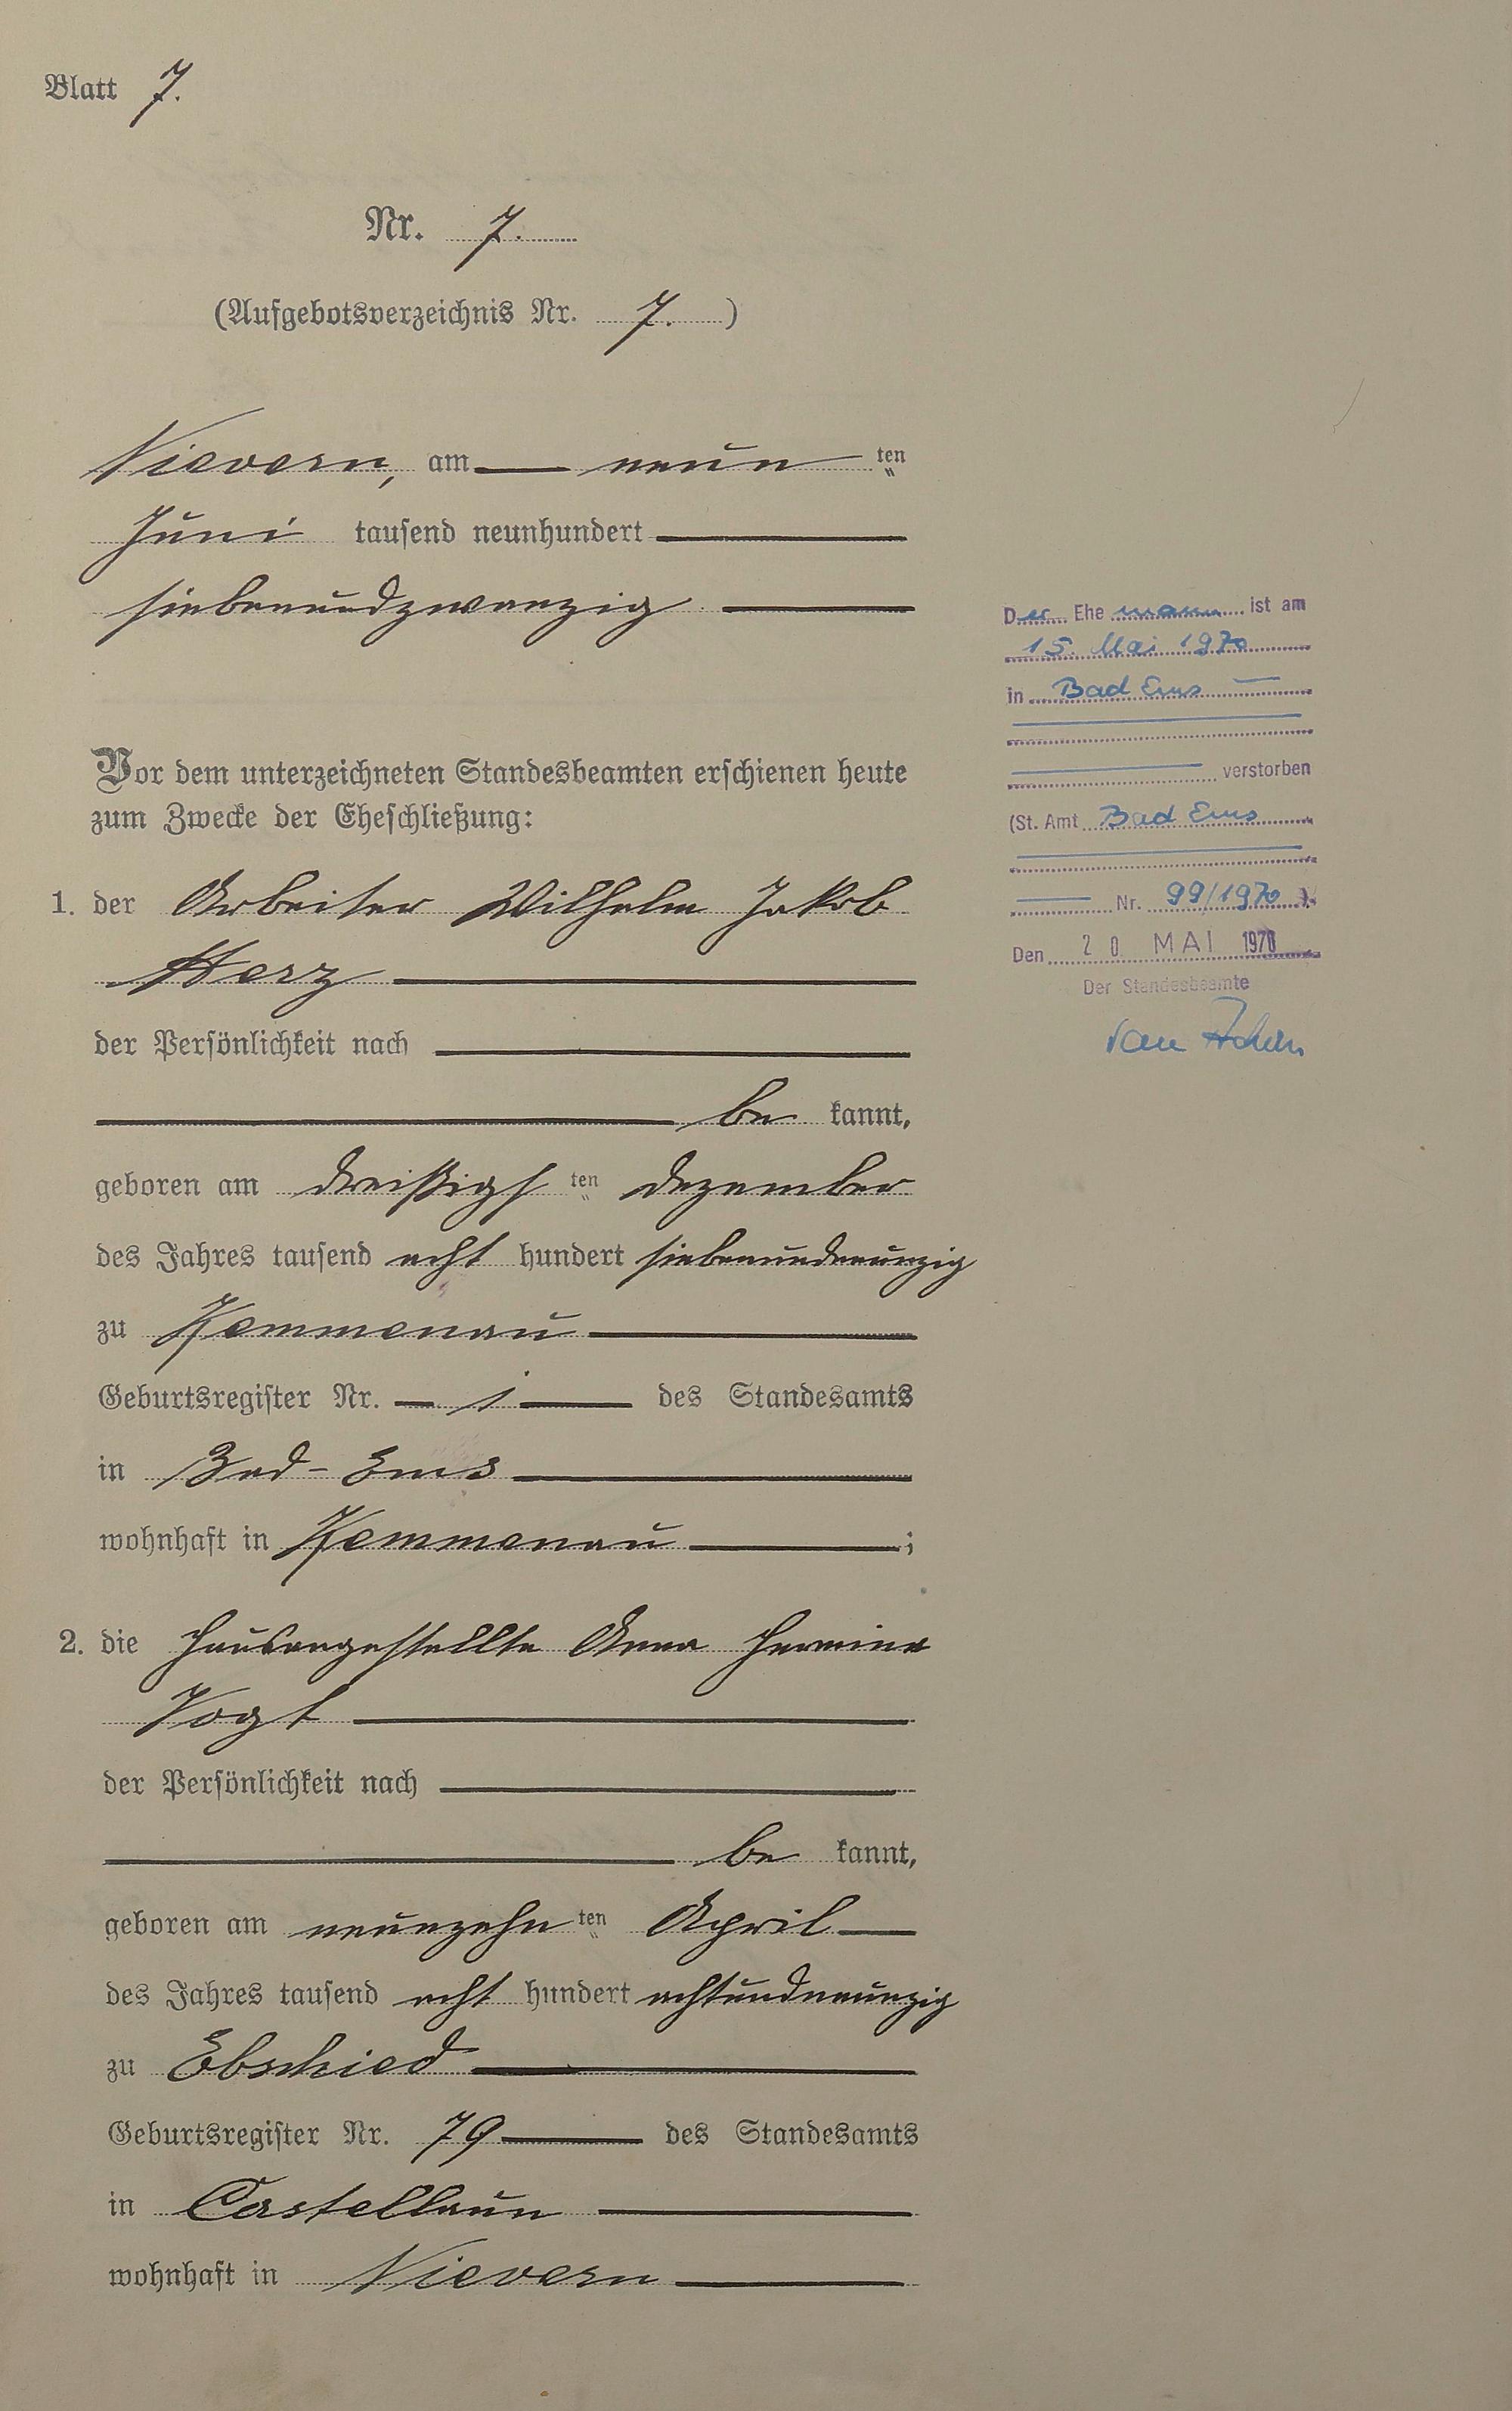 Blatt 7.
Nr. 7.
(Aufgebotsverzeichnis Nr. 7.)
Nievern, am neun ten
Juni tausend neunhundert
siebenundzwanzig
Vor dem unterzeichneten Standesbeamten erschienen heute
zum Zwecke der Eheschließung:
1. der Arbeiter Wilhelm Jakob
Herz
der Persönlichkeit nach
be kannt,
geboren am dreißigs ten Dezember
des Jahres tausend acht hundert siebenundneunzig
zu Kemmenau
Geburtsregister Nr. 1 des Standesamts
in Bad-Ems
wohnhaft in Kemmenau ;
2. die Hausangestellte Anna Hermine
Vogt
der Persönlichkeit nach
be kannt,
geboren am neunzehn ten April
des Jahres tausend acht hundert achtundneunzig
zu Ebschied
Geburtsregister Nr. 79 des Standesamts
in Castellaun
wohnhaft in Nievern
Der Ehe mann ist am
15. Mai 1970
in Bad Ems
verstorben
(St. Amt Bad Ems
Nr. 99/1970 ).
Den 20. MAI 1970
Der Standesbeamte